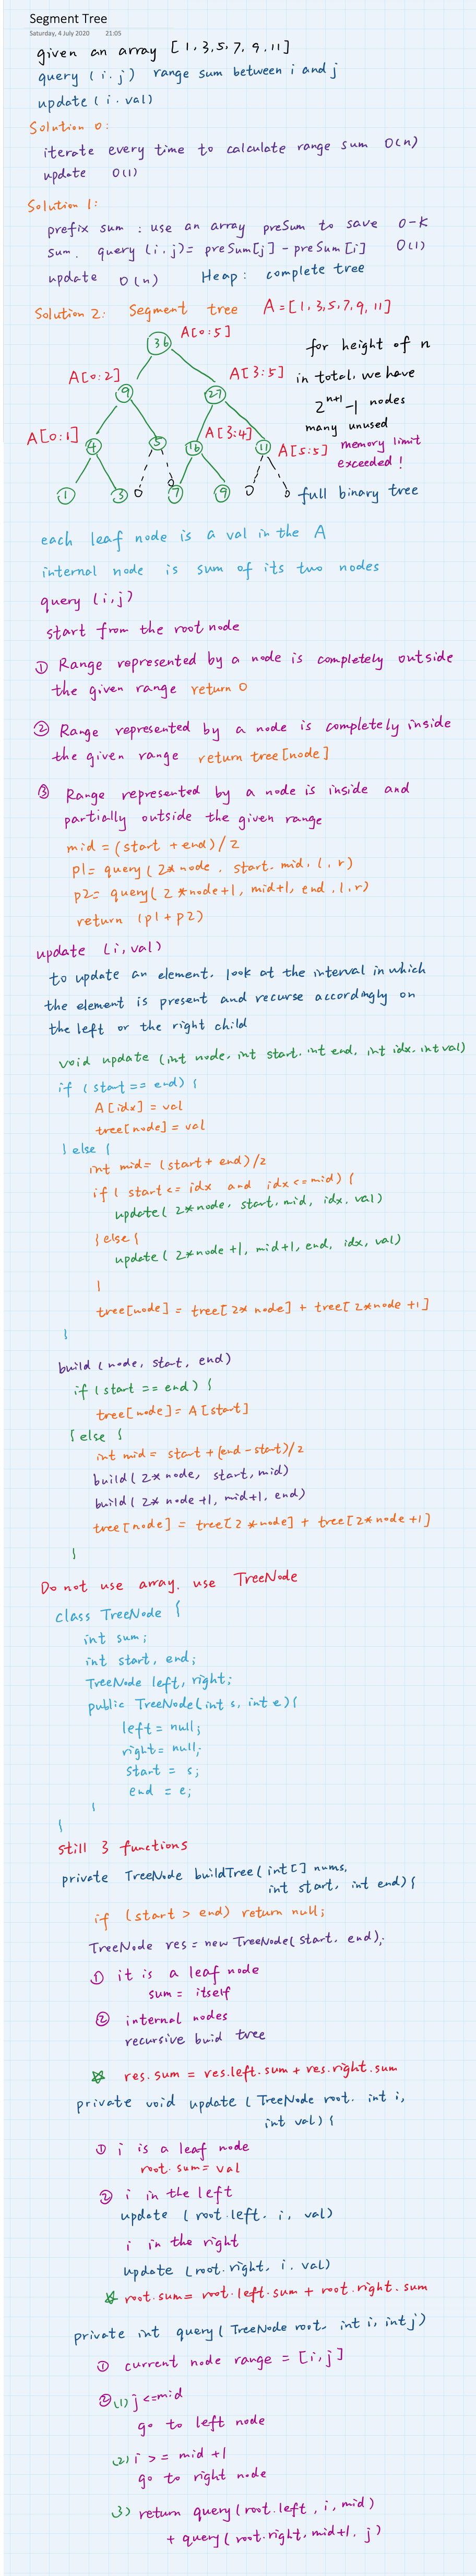 Segment Tree
Saturday, 4 July 2020 21:05
given an array [1,3,5,7,9,11]
query (i.j) range sum between i and j
update (i.val)
Solution 0:
iterate every time to calculate range sum O(n)
update O(1)
Solution 1:
prefix sum : use an array preSum to save 0-K
sum. query (i.j)= preSum[j] - preSum[i] O(1)
update O(n) Heap: complete tree
Solution 2: Segment tree A=[1,3,5,7,9,11]
36 A[0:5]
for height of n
A[0:2] 9 27 A[3:5] in total, we have
2^(n+1) -1 nodes
many unused
A[0:1] 4 5 16 A[3:4] 11 A[5:5] memory limit
exceeded!
1 3 0 0 7 9 0 0 full binary tree
each leaf node is a val in the A
internal node is sum of its two nodes
query (i,j)
start from the root node
① Range represented by a node is completely outside
the given range return 0
② Range represented by a node is completely inside
the given range return tree[node]
③ Range represented by a node is inside and
partially outside the given range
mid = (start + end)/2
p1= query(2*node, start, mid, l, r)
p2= query(2*node+1, mid+1, end, l, r)
return (p1+p2)
update (i,val)
to update an element. look at the interval in which
the element is present and recurse accordingly on
the left or the right child
void update (int node, int start, int end, int idx, int val)
if (start == end) {
A[idx] = val
tree[node] = val
} else {
int mid= (start + end)/2
if ( start <= idx and idx <= mid) {
update( 2*node, start, mid, idx, val)
} else {
update( 2*node +1, mid+1, end, idx, val)
}
tree[node] = tree[2*node] + tree[2*node+1]
}
build (node, start, end)
if (start == end) {
tree[node]= A[start]
} else {
int mid = start + (end-start)/2
build( 2* node, start, mid)
build( 2* node +1, mid+1, end)
tree[node] = tree[2*node] + tree[2*node+1]
}
Do not use array. use TreeNode
class TreeNode {
int sum;
int start, end;
TreeNode left, right;
public TreeNode(int s, int e){
left = null;
right= null;
start = s;
end = e;
}
}
still 3 functions
private TreeNode buildTree(int[] nums,
int start, int end){
if (start > end) return null;
TreeNode res = new TreeNode(start, end);
① it is a leaf node
sum = itself
② internal nodes
recursive buid tree
☆ res.sum = res.left.sum + res.right.sum
private void update (TreeNode root. int i,
int val){
① i is a leaf node
root.sum= val
② i in the left
update (root.left. i, val)
i in the right
update (root.right, i. val)
☆ root.sum= root.left.sum + root.right.sum
private int query( TreeNode root. int i, int j)
① current node range = [i,j]
② (1) j <=mid
go to left node
(2) i >= mid +1
go to right node
(3) return query(root.left, i, mid)
+ query(root.right, mid+1, j)